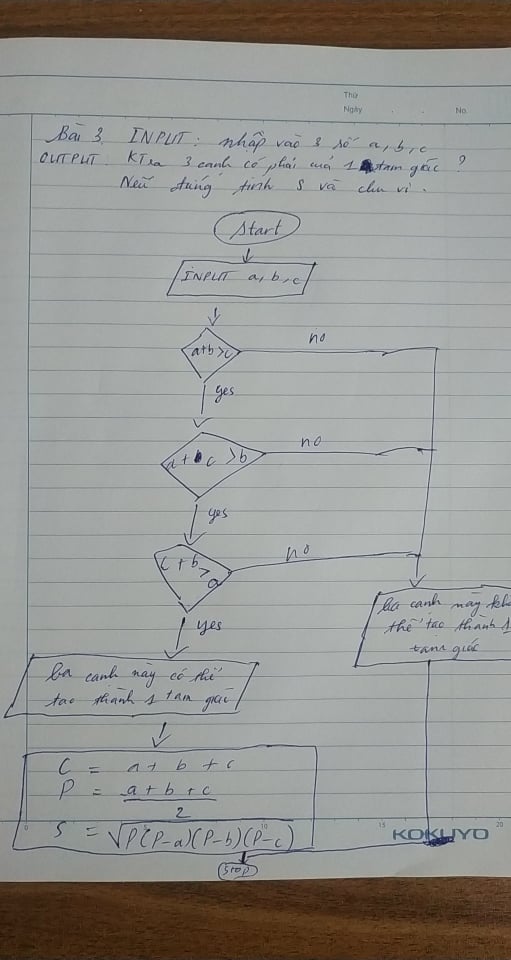 Thứ
Ngày . . No.
Bài 3. INPUT: nhập vào 3 số a, b, c
OUTPUT: KTra 3 cạnh có phải là 1 tam giác ?
Nếu đúng tính S và chu vi.
Start
INPUT a, b, c
a+b>c
no
yes
a + c > b
no
yes
c + b > a
no
yes
ba cạnh này có thể
tạo thành 1 tam giác
ba cạnh này khô
thể tạo thành 1
tam giác
C = a + b + c
P = a + b + c
2
S = √P(P-a)(P-b)(P-c)
0 10 15 20
KOKUYO
Stop